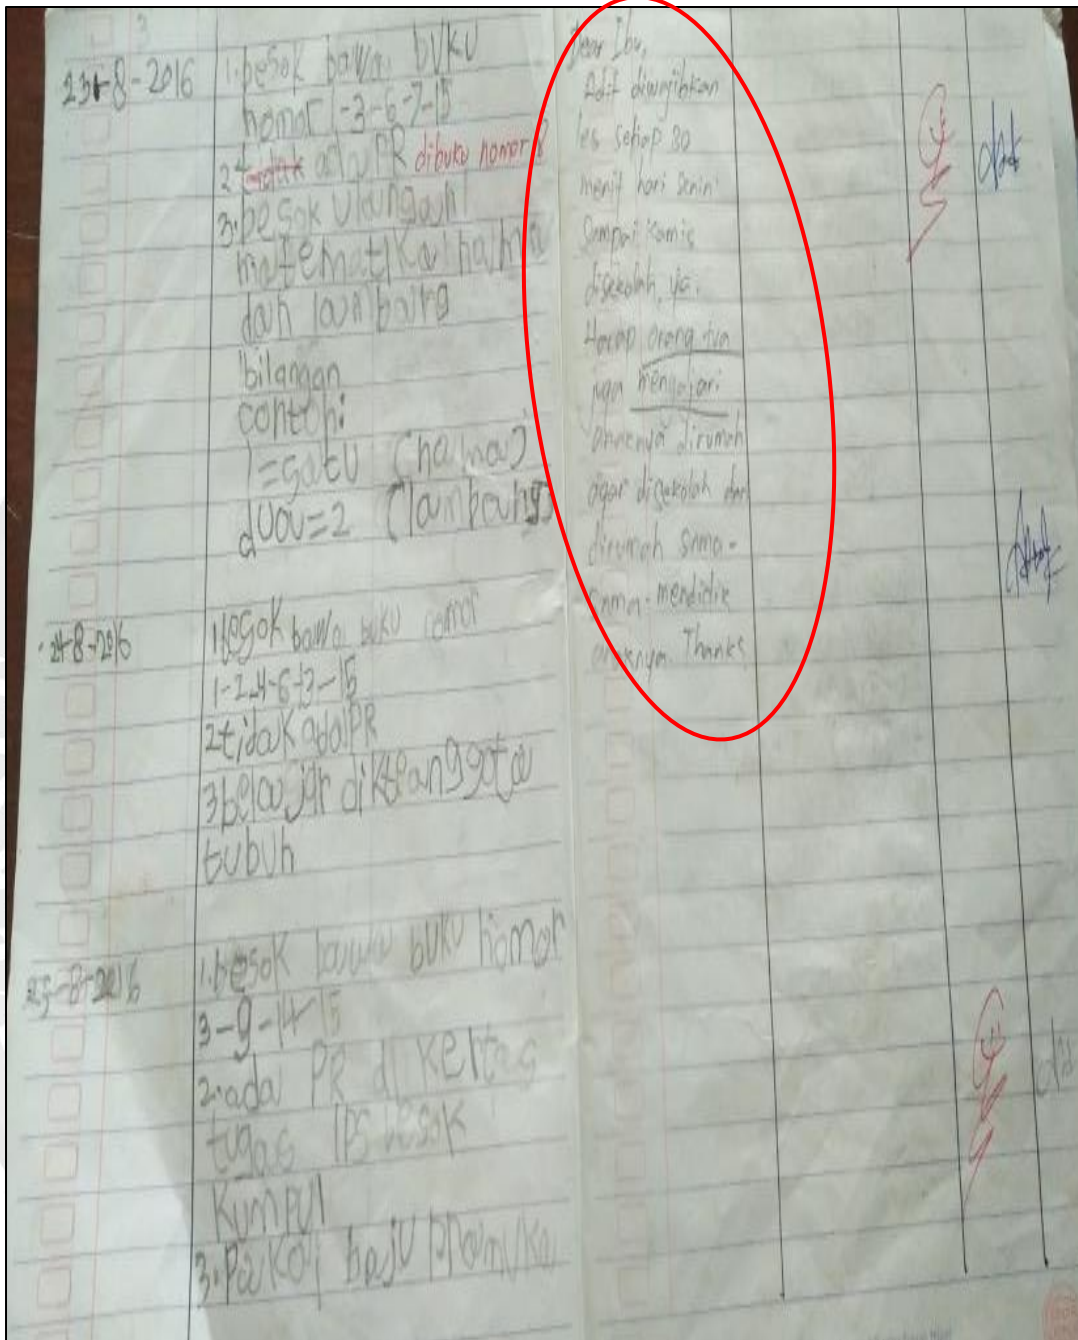 23-8-2016
1. besok bawa buku
nomor 1-3-6-7-15
2. ada PR dibuku nomor
3. besok ulangan
matematika nama
dan lambang
bilangan
contoh:
1=satu (nama)
dua=2 (lambang)
24-8-2016
1. besok bawa buku nomor
1-2-4-6-13-15
2 tidak ada PR
3 belajar dikte anggota
tubuh
25-8-2016
1. besok bawa buku nomor
3-9-14-15
2. ada PR di kertas
tugas IPS besok
kumpul
3. Pakai baju pramuka
Dear Ibu,
Adit diwajibkan
les setiap 30
menit hari Senin
Sampai Kamis
disekolah, ya.
Harap orang tua
juga mengajari
anaknya dirumah
agar disekolah dan
dirumah sama-
sama mendidik
anaknya. Thanks